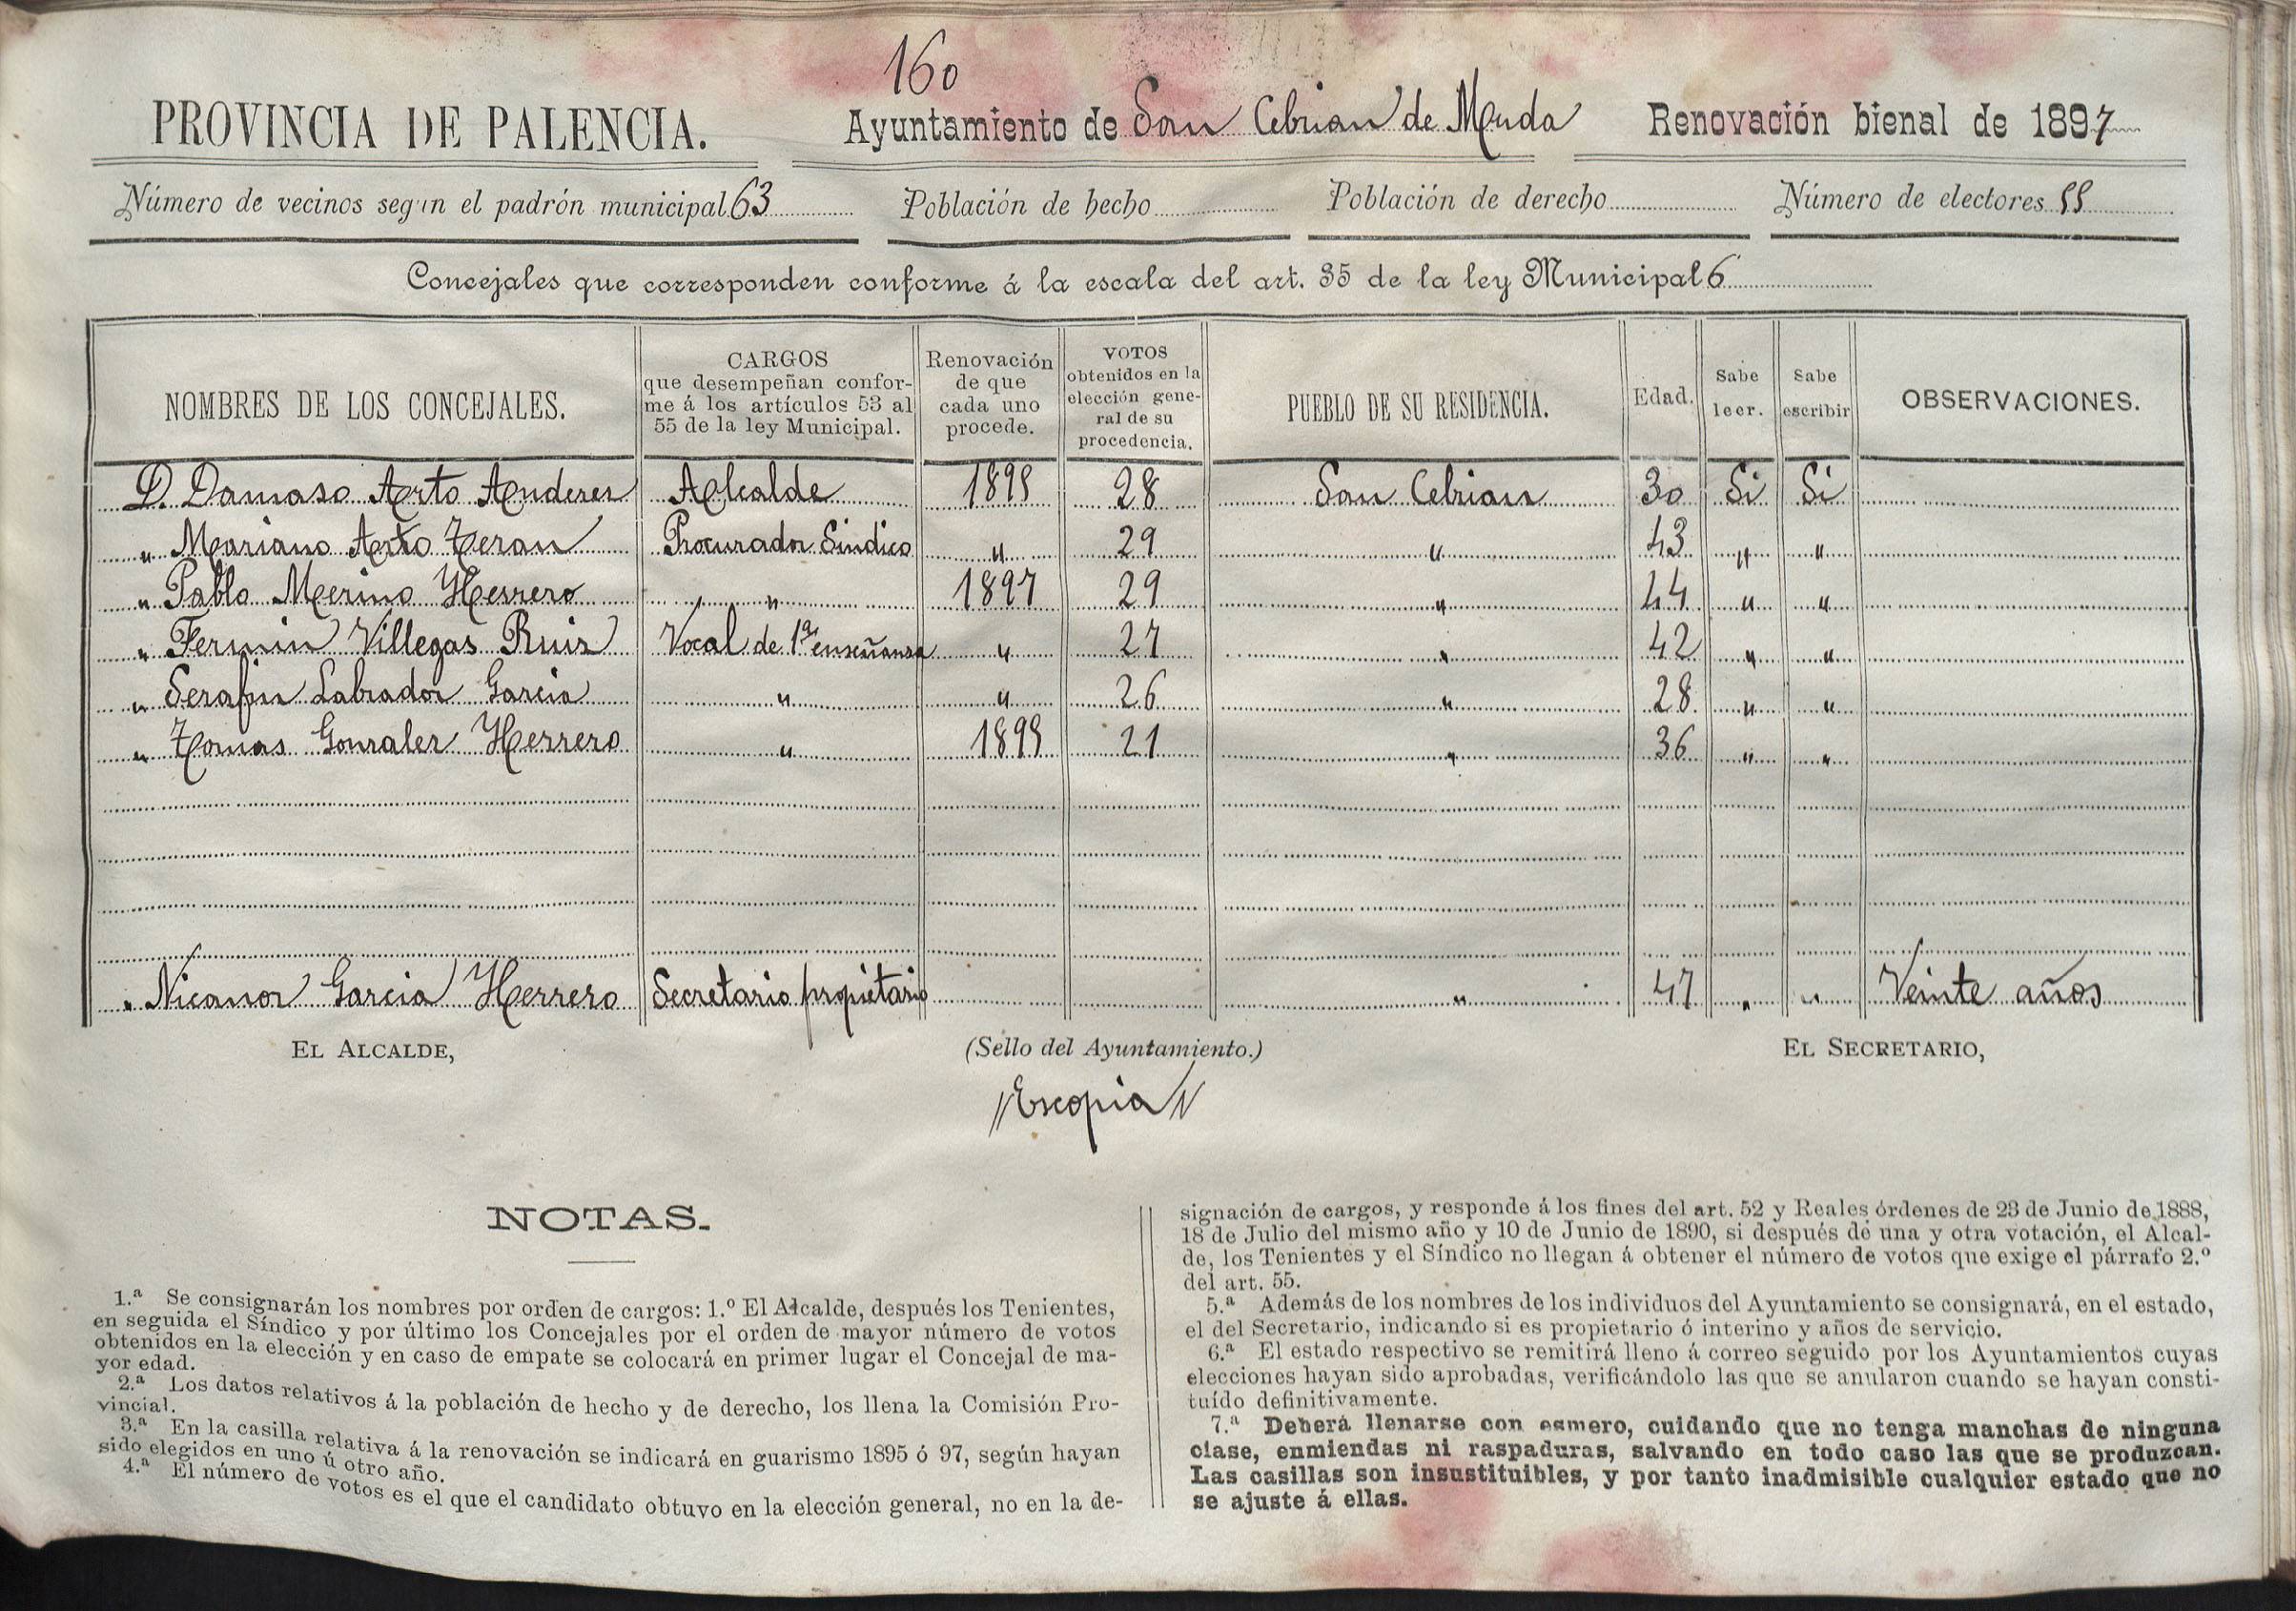 160
PROVINCIA DE PALENCIA. Ayuntamiento de San Cebrian de Muda Renovación bienal de 1897
Número de vecinos según el padrón municipal 63 Población de hecho Población de derecho Número de electores 55
Concejales que corresponden conforme á la escala del art. 35 de la ley Municipal 6
NOMBRES DE LOS CONCEJALES. CARGOS que desempeñan conforme á los artículos 53 al 55 de la ley Municipal. Renovación de que cada uno procede. VOTOS obtenidos en la elección general de su procedencia. PUEBLO DE SU RESIDENCIA. Edad. Sabe leer. Sabe escribir OBSERVACIONES.
D. Damaso Arto Anderes Alcalde 1895 28 San Cebrian 30 Si Si
" Mariano Arto Teran Procurador Sindico " 29 " 43 " "
" Pablo Merino Herrero " 1897 29 " 44 " "
" Fermin Villegas Ruiz Vocal de 1ª enseñanza " 27 " 42 " "
" Serafin Labrador Garcia " " 26 " 28 " "
" Tomas Gonzalez Herrero " 1895 21 " 36 " "
" Nicanor Garcia Herrero Secretario propietario " 47 " " Veinte años
EL ALCALDE, (Sello del Ayuntamiento.) EL SECRETARIO,
Es copia
NOTAS.
1.ª Se consignarán los nombres por orden de cargos: 1.º El Alcalde, después los Tenientes,
en seguida el Síndico y por último los Concejales por el orden de mayor número de votos
obtenidos en la elección y en caso de empate se colocará en primer lugar el Concejal de ma-
yor edad.
2.ª Los datos relativos á la población de hecho y de derecho, los llena la Comisión Pro-
vincial.
3.ª En la casilla relativa á la renovación se indicará en guarismo 1895 ó 97, según hayan
sido elegidos en uno ú otro año.
4.ª El número de votos es el que el candidato obtuvo en la elección general, no en la de-
signación de cargos, y responde á los fines del art. 52 y Reales órdenes de 23 de Junio de 1888,
18 de Julio del mismo año y 10 de Junio de 1890, si después de una y otra votación, el Alcal-
de, los Tenientes y el Síndico no llegan á obtener el número de votos que exige el párrafo 2.º
del art. 55.
5.ª Además de los nombres de los individuos del Ayuntamiento se consignará, en el estado,
el del Secretario, indicando si es propietario ó interino y años de servicio.
6.ª El estado respectivo se remitirá lleno á correo seguido por los Ayuntamientos cuyas
elecciones hayan sido aprobadas, verificándolo las que se anularon cuando se hayan consti-
tuído definitivamente.
7.ª Deberá llenarse con esmero, cuidando que no tenga manchas de ninguna
clase, enmiendas ni raspaduras, salvando en todo caso las que se produzcan.
Las casillas son insustituibles, y por tanto inadmisible cualquier estado que no
se ajuste á ellas.